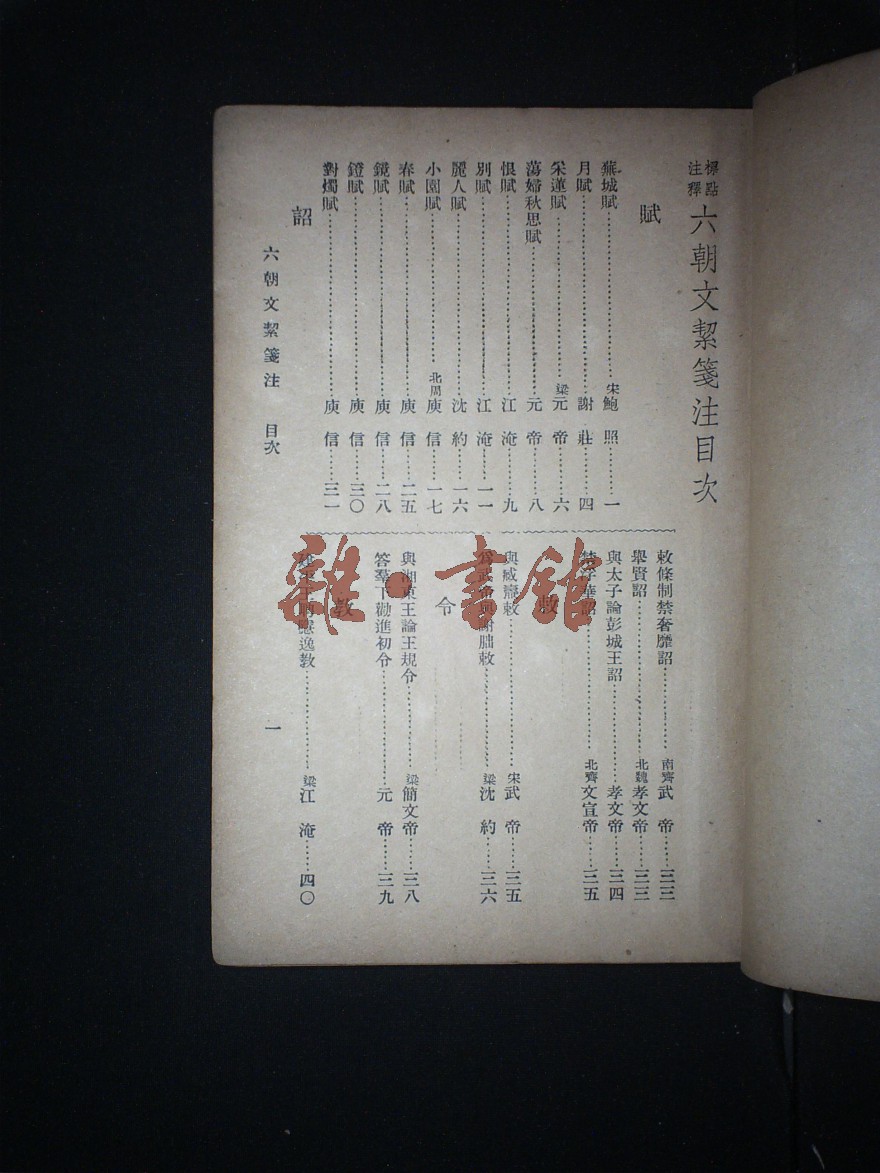 標點
注釋
六朝文絜箋注目次
賦
蕪城賦……宋鮑照……一
月賦……謝莊……四
采蓮賦……梁元帝……六
蕩婦秋思賦……元帝……八
恨賦……江淹……九
別賦……江淹……一一
麗人賦……沈約……一六
小園賦……北周庾信……一七
春賦……庾信……二五
鏡賦……庾信……二八
鐙賦……庾信……三〇
對燭賦……庾信……三一
詔
敕條制禁奢靡詔……南齊武帝……三三
舉賢詔……北魏孝文帝……三三
與太子論彭城王詔……孝文帝……三四
禁浮華詔……北齊文宣帝……三五
敕
與臧燾敕……宋武帝……三五
爲武帝與謝朏敕……梁沈約……三六
令
與湘東王論王規令……梁簡文帝……三八
答羣下勸進初令……元帝……三九
教
建平王聘隱逸教……梁江淹……四〇
六朝文絜箋注 目次
一
雜·書館